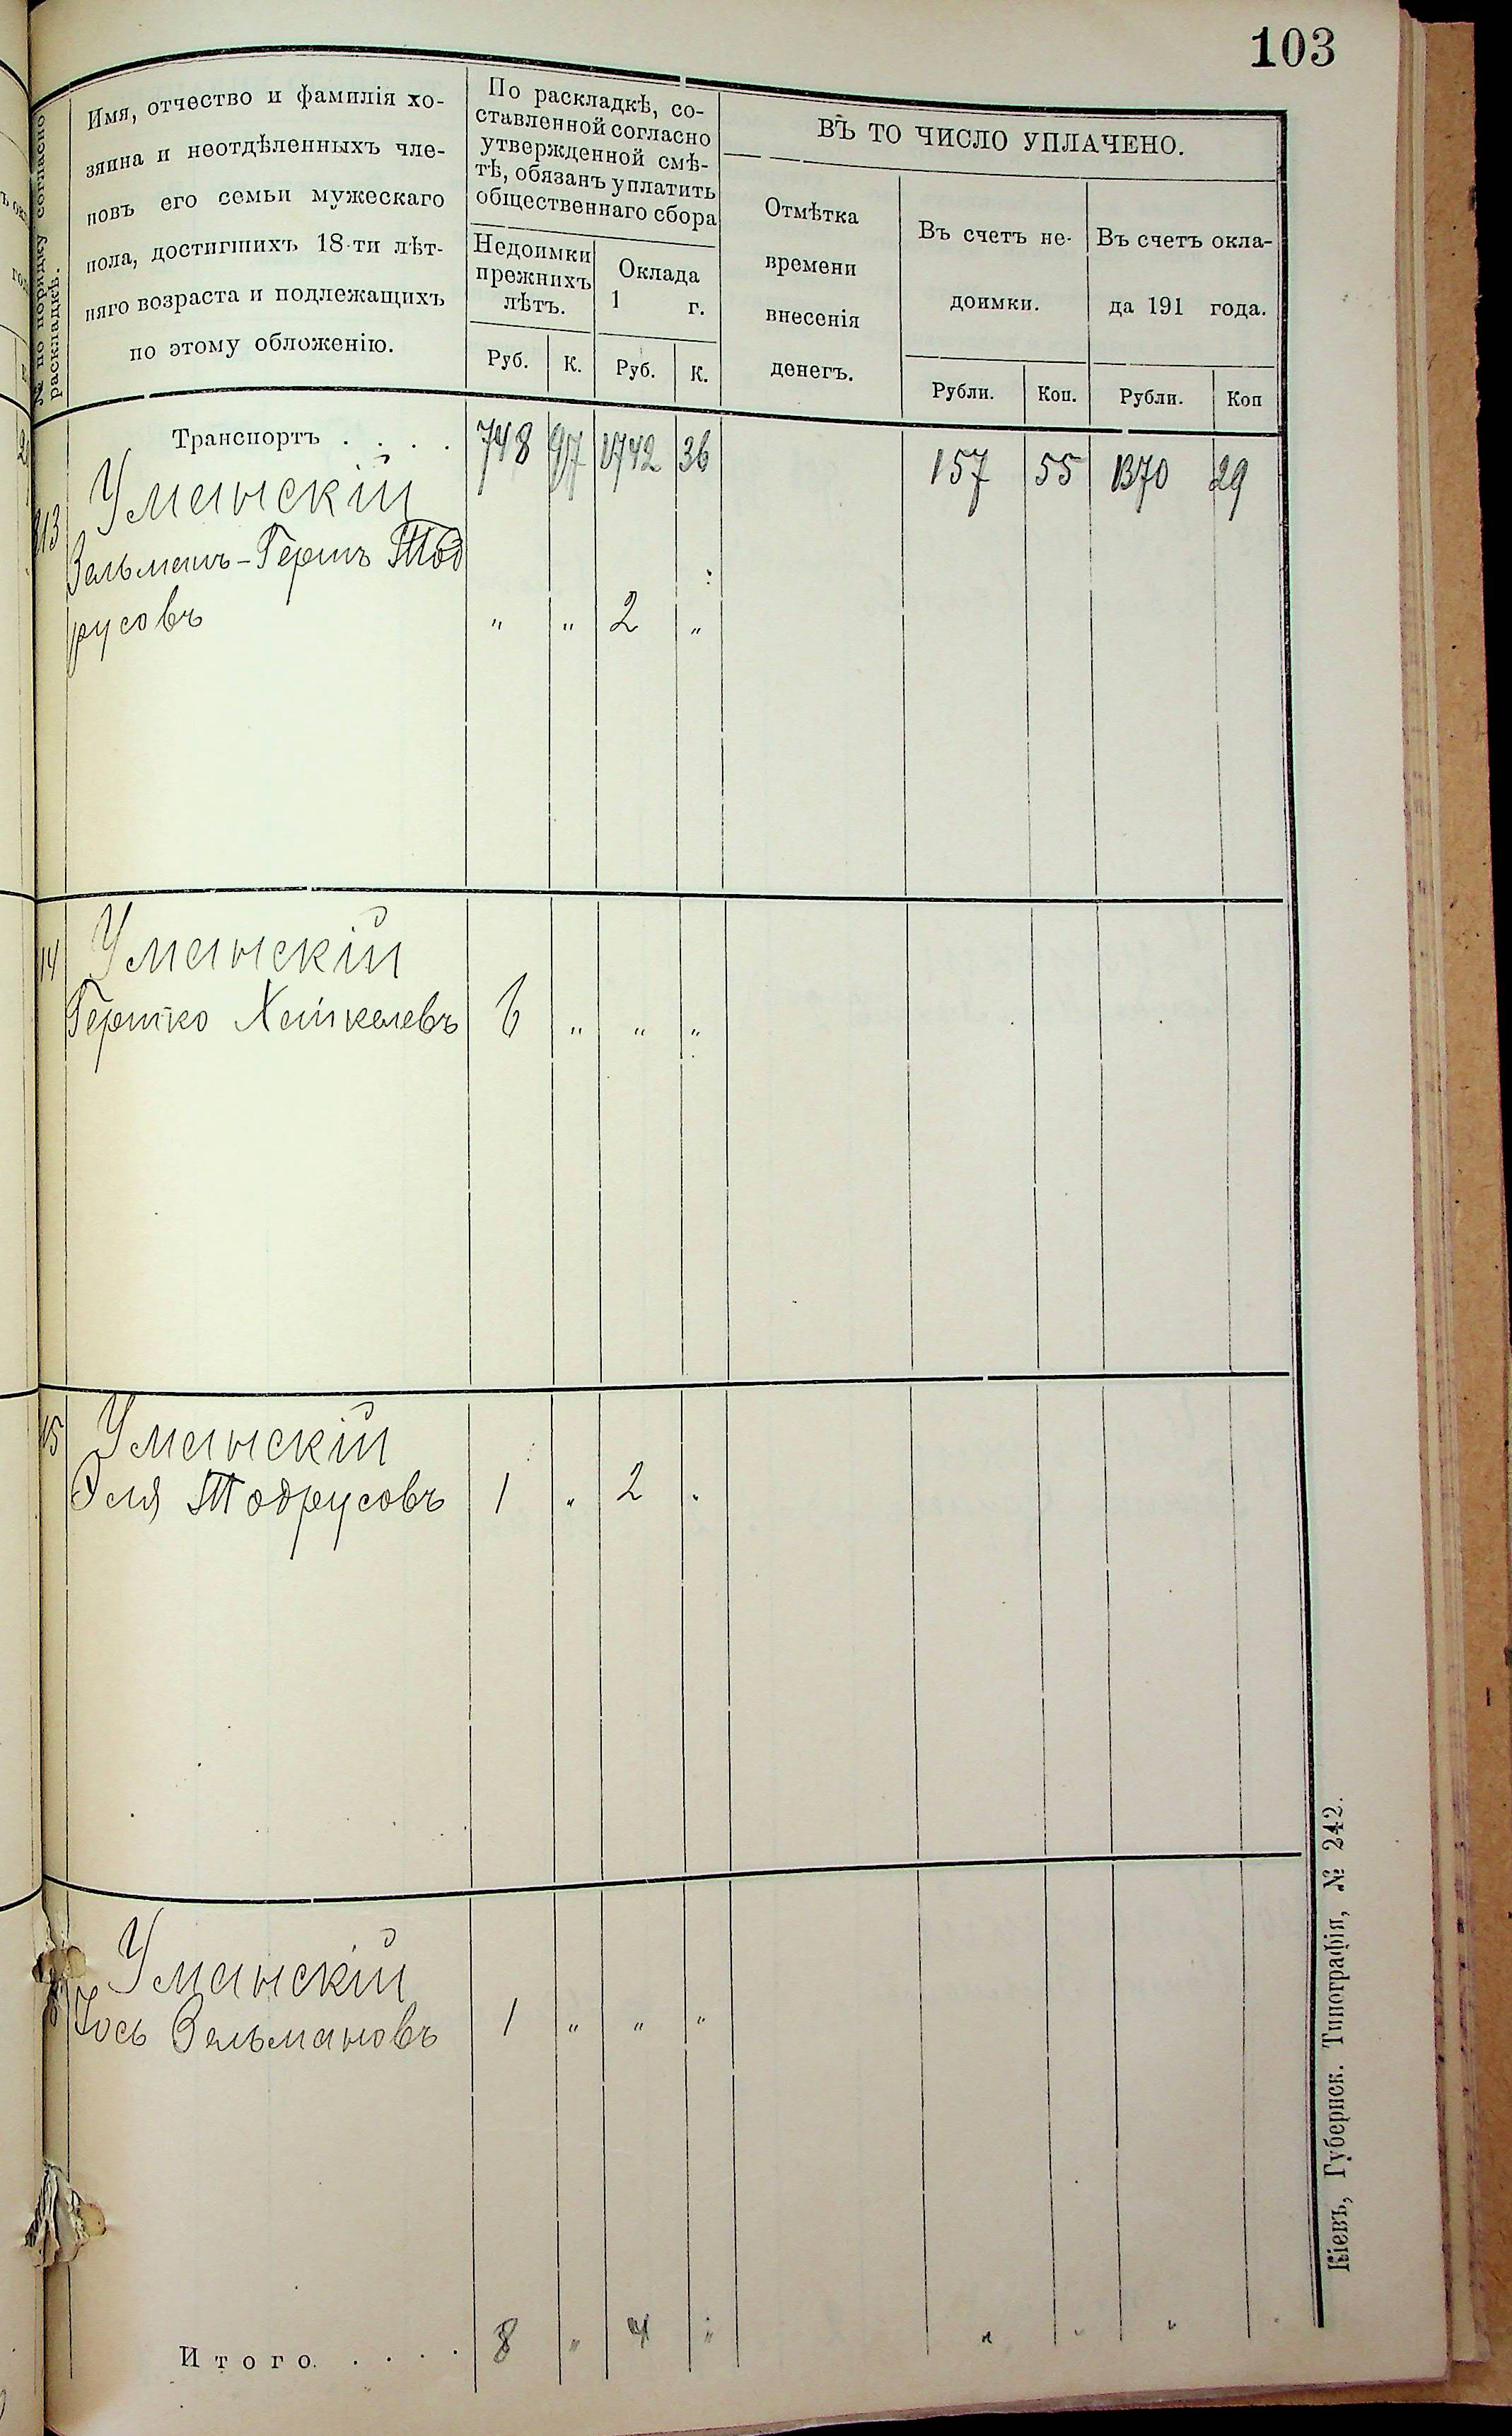 103
№ по порядку согласно
раскладкѣ.
Имя, отчество и фамилія хо-
зяина и неотдѣленныхъ чле-
новъ его семьи мужескаго
пола, достигшихъ 18-ти лѣт-
няго возраста и подлежащихъ
по этому обложенію.
По раскладкѣ, со-
ставленной согласно
утвержденной смѣ-
тѣ, обязанъ уплатить
общественнаго сбора
Недоимки
прежнихъ
лѣтъ.
Оклада
1 г.
Руб. К. Руб. К.
ВЪ ТО ЧИСЛО УПЛАЧЕНО.
Отмѣтка
времени
внесенія
денегъ.
Въ счетъ не-
доимки.
Въ счетъ окла-
да 191 года.
Рубли. Коп. Рубли. Коп
Транспортъ . . . . 748 97 1742 36 157 55 1370 29
Уманскій
Зельманъ-Гершъ Тод
русовъ " " 2 "
14 Уманскій
Гершко Хаинкелевъ 6 " " "
15 Уманскій
Эля Тодрусовъ 1 " 2 "
Уманскій
Іось Зельмановъ 1 " " "
Итого. . . . . 8 " 4 " " " "
Кіевъ, Губернск. Типографія, № 242.